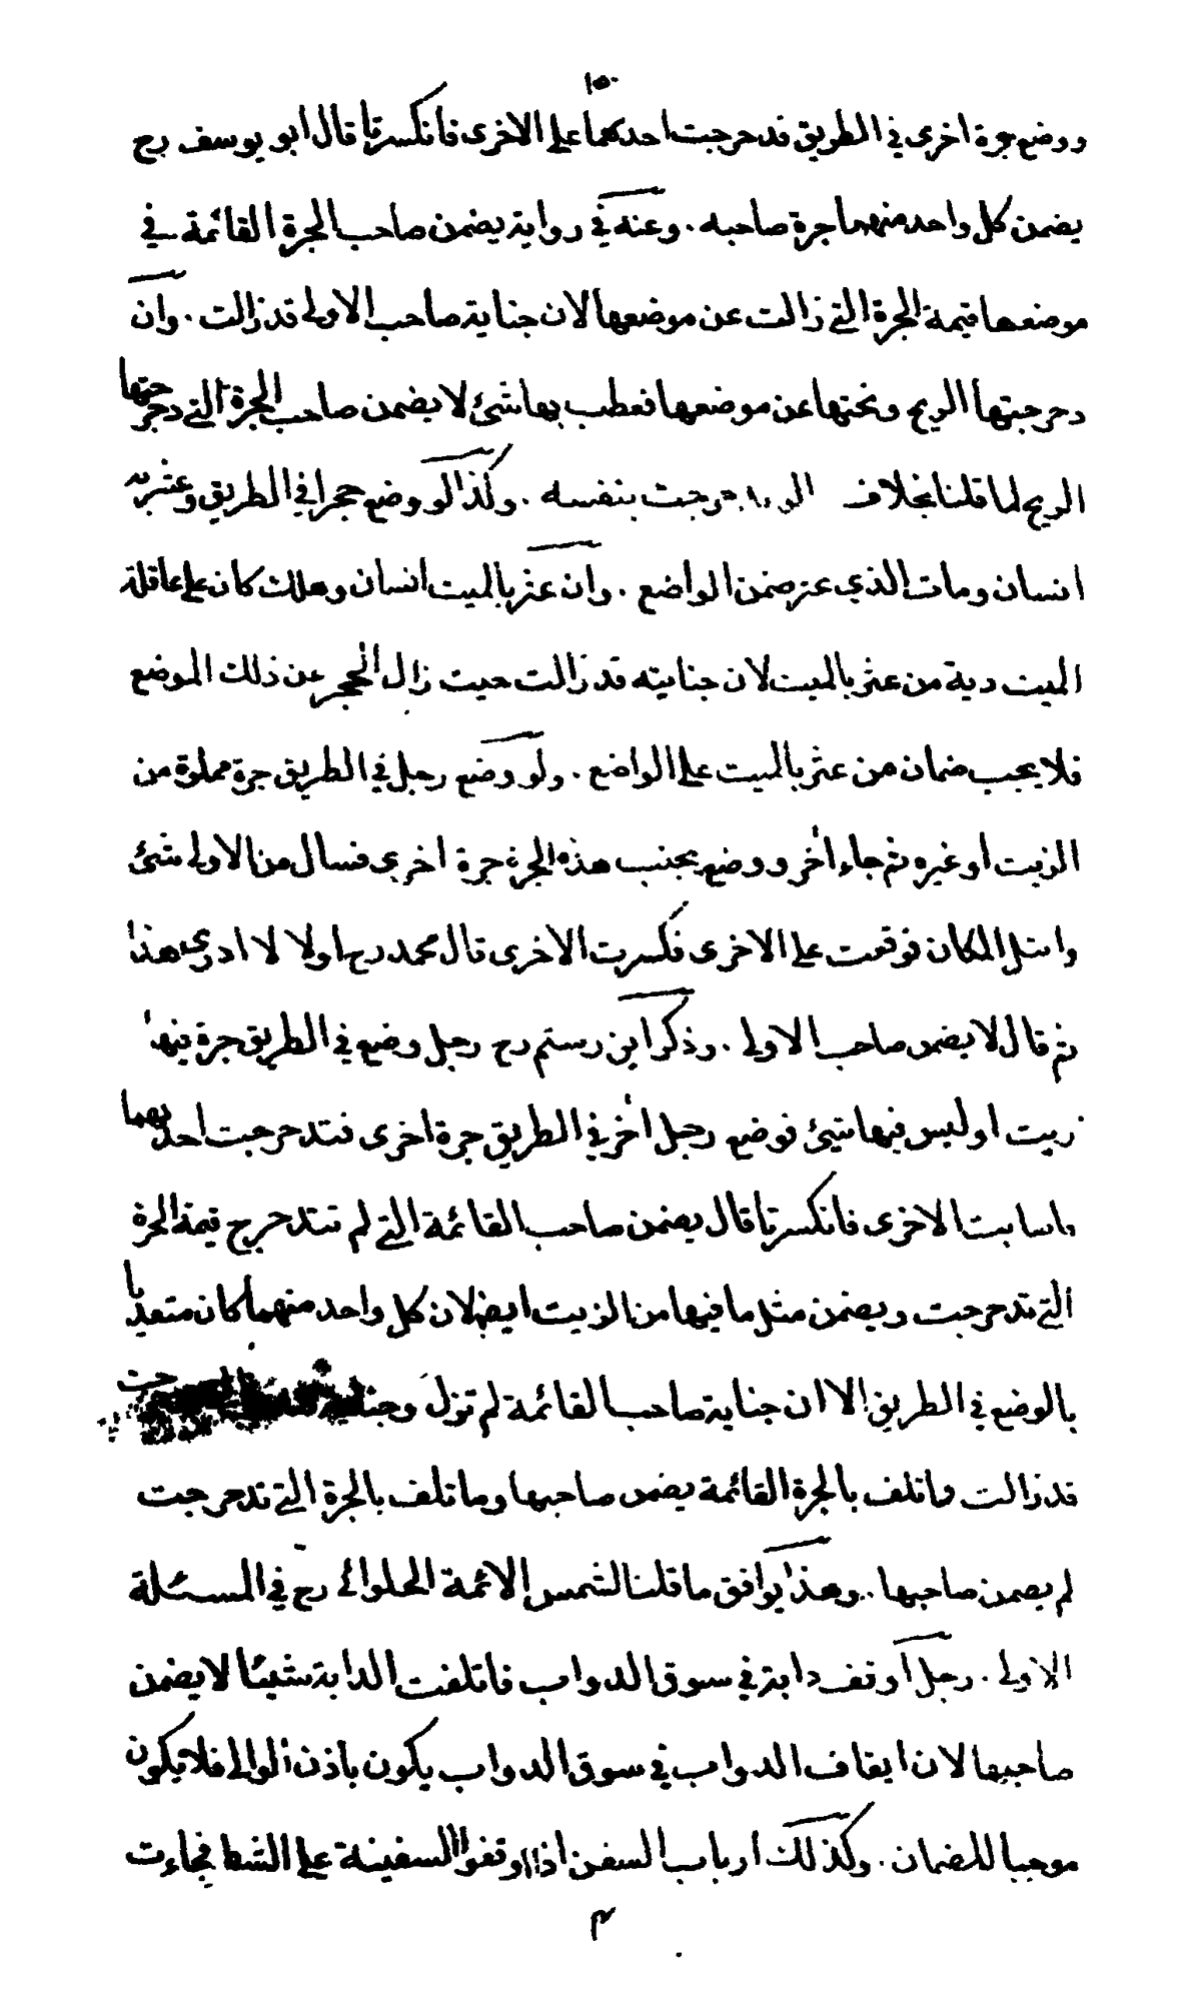 ١٥٠
ووضع جرة اخرى في الطريق فتدحرجت احدهما على الاخرى فانكسرتا قال ابو يوسف رح
يضمن كل واحد منهما جرة صاحبه . وعنه في رواية يضمن صاحب الجرة القائمة في
موضعها قيمة الجرة التي زالت عن موضعها لان جناية صاحب الاولى قد زالت . وان
دحرجتها الريح ونحتها عن موضعها فعطب بها شئ لا يضمن صاحب الجرة التي دحرجتها
الريح لما قلنا بخلاف بنفسه . وكذا لو وضع حجرا في الطريق وعثر به
انسان ومات الذي عثر ضمن الواضع . وان عثر بالميت انسان وهلك كان على عاقلة
الميت دية من عثر بالميت لان جنايته قد زالت حيث زال الحجر عن ذلك الموضع
فلا يجب ضمان من عثر بالميت على الواضع . ولو وضع رجل في الطريق جرة مملوة من
الزيت او غيره ثم جاء اخر ووضع بجنب هذه الجرة جرة اخرى فسال من الاولى شئ
وابتل المكان فوقعت على الاخرى فكسرت الاخرى قال محمد رح اولا لا ادرى هذا
ثم قال لا يضمن صاحب الاولى . وذكر ابن رستم رح رجل وضع في الطريق جرة فيها
زيت او ليس فيها شئ فوضع رجل اخر في الطريق جرة اخرى فتدحرجت احديهما
الاخرى فانكسرتا قال يضمن صاحب القائمة التي لم تتدحرج قيمة الجرة
التي تدحرجت ويضمن مثل ما فيها من الزيت ايضا لان كل واحد منهما كان متعديا
بالوضع في الطريق الا ان جناية صاحب القائمة لم تزل وجناية
قد زالت وما تلف بالجرة القائمة يضمن صاحبها وما تلف بالجرة التي تدحرجت
لم يضمن صاحبها . وهذا يوافق ما قلنا لشمس الائمة الحلوائي رح في المسئلة
الاولى . رجل اوقف دابة في سوق الدواب فاتلفت الدابة شيئا لا يضمن
صاحبها لان ايقاف الدواب في سوق الدواب يكون باذن الوالي فلا يكون
موجبا للضمان . وكذلك ارباب السفن اذا اوقفوا السفينة على الشط فجاءت